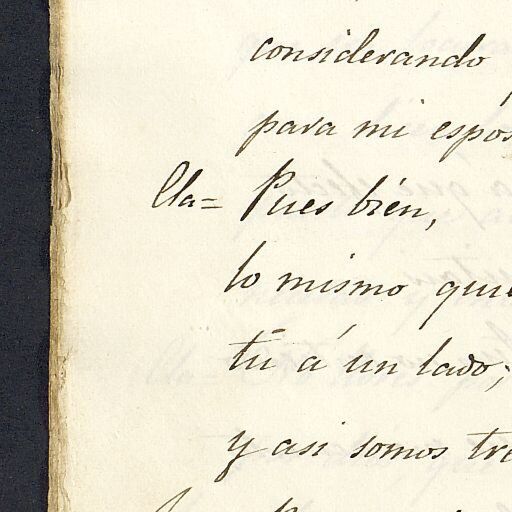 considerando
para mi espos
Cla= Pues bién,
lo mismo que
tú á un lado;
y asi somos tre